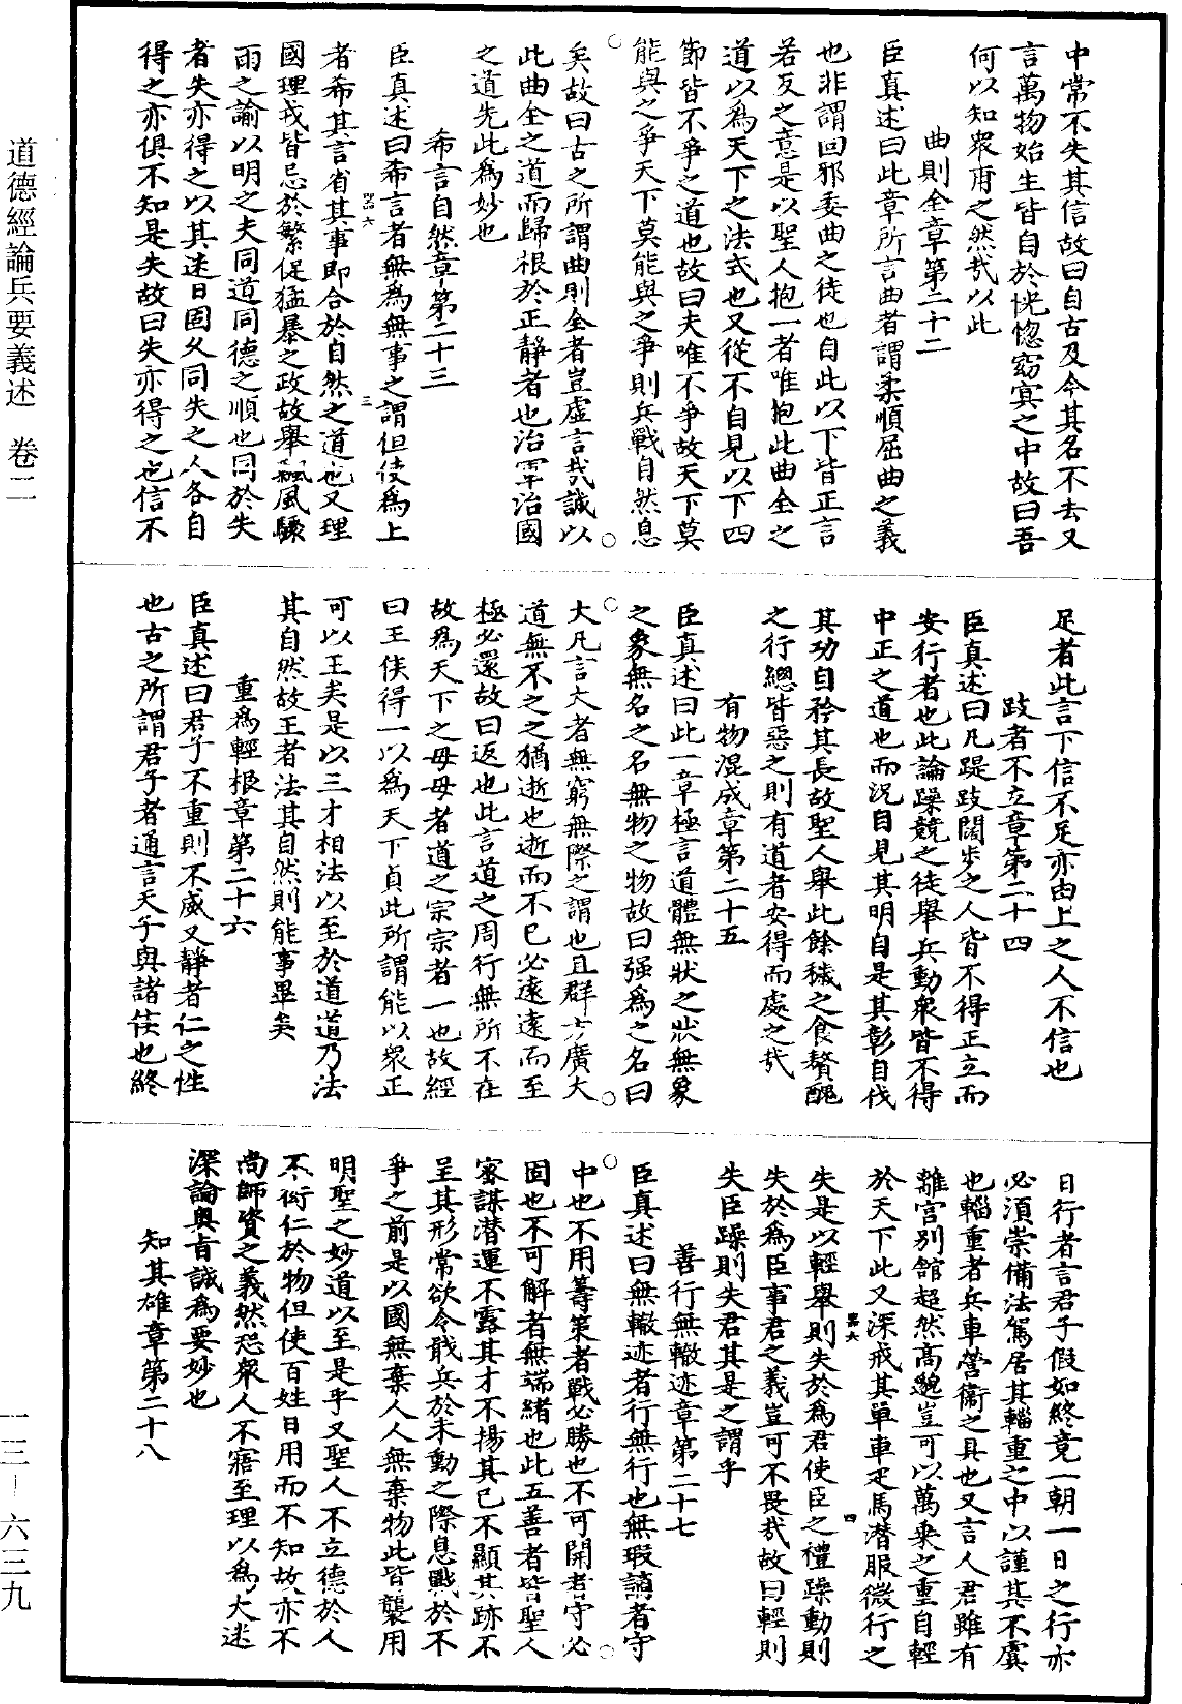 中常不失其信故曰自古及今其名不去又
言萬物始生皆自於恍惚窈冥之中故曰吾
何以知衆甫之然哉以此
曲則全章第二十二
臣真述曰此章所言曲者謂柔順屈曲之義
也非謂回邪委曲之徒也自此以下皆正言
若反之意是以聖人抱一者唯抱此曲全之
道以爲天下之法式也又從不自見以下四
節皆不爭之道也故曰夫唯不爭故天下莫
能與之爭天下莫能與之爭則兵戰自然息
矣故曰古之所謂曲則全者豈虛言哉誠以
此曲全之道而歸根於正靜者也治軍治國
之道先此爲妙也
希言自然章第二十三
臣真述曰希言者無爲無事之謂但使爲上
者希其言省其事即合於自然之道也又理
國理戎皆忌於繁促猛暴之政故舉飄風驟
雨之諭以明之夫同道同德之順也同於失
者失亦得之以其迷日固久同失之人各自
得之亦俱不知是失故曰失亦得之也信不
足者此言下信不足亦由上之人不信也
跂者不立章第二十四
臣真述曰凡踶跂闊步之人皆不得正立而
安行者也此論躁競之徒舉兵動衆皆不得
中正之道也而況自見其明自是其彰自伐
其功自矜其長故聖人舉此餘穢之食贅醜
之行總皆惡之則有道者安得而處之哉
有物混成章第二十五
臣真述曰此一章極言道體無狀之狀無象
之象無名之名無物之物故曰强爲之名曰
大凡言大者無窮無際之謂也且群方廣大
道無不之之猶逝也逝而不已必遠遠而至
極必還故曰返也此言道之周行無所不在
故爲天下之母母者道之宗宗者一也故經
曰王侯得一以爲天下貞此所謂能以衆正
可以王矣是以三才相法以至於道道乃法
其自然故王者法其自然則能事畢矣
重爲輕根章第二十六
臣真述曰君子不重則不威又靜者仁之性
也古之所謂君子者通言天子與諸侯也終
日行者言君子假如終竟一朝一日之行亦
必須崇備法駕居其輜重之中以謹其不虞
也輜重者兵車營衞之具也又言人君雖有
離宮別館超然高邈豈可以萬乘之重自輕
於天下此又深戒其單車疋馬潛服微行之
失是以輕舉則失於爲君使臣之禮躁動則
失於爲臣事君之義豈可不畏哉故曰輕則
失臣躁則失君其是之謂乎
善行無轍迹章第二十七
臣真述曰無轍迹者行無行也無瑕謫者守
中也不用籌策者戰必勝也不可開者守必
固也不可解者無端緒也此五善者皆聖人
密謀潜運不露其才不揚其己不顯其跡不
呈其形常欲令戢兵於未動之際息戰於不
爭之前是以國無棄人人無棄物此皆襲用
明聖之妙道以至是乎又聖人不立德於人
不衒仁於物但使百姓日用而不知故亦不
尚師資之義然恐衆人不寤至理以爲大迷
深論奥旨誠爲要妙也
知其雄章第二十八
道德經論兵要義述 卷二
一三—六三九